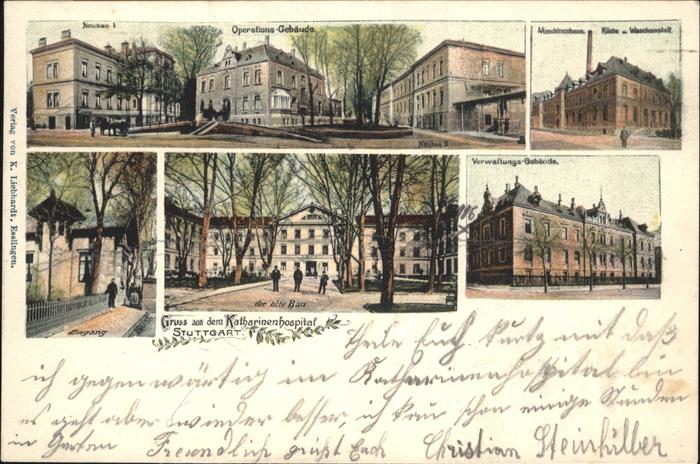 Neubau I
Operations-Gebäude
Maschinenhaus. Küche u. Waschanstalt.
Neubau II
Verwaltungs-Gebäude.
Verlag von K. Liebhardt, Esslingen.
Eingang
der alte Bau
Gruss aus dem Katharinenhospital
STUTTGART.
Theile Euch kurtz mit daß
ich gegenwärtig im Katharinenhospital bin
es geht aber wieder besser, ich kan schon einige Stunden
in Garten Freundlich grüßt Euch Christian Steinhilber